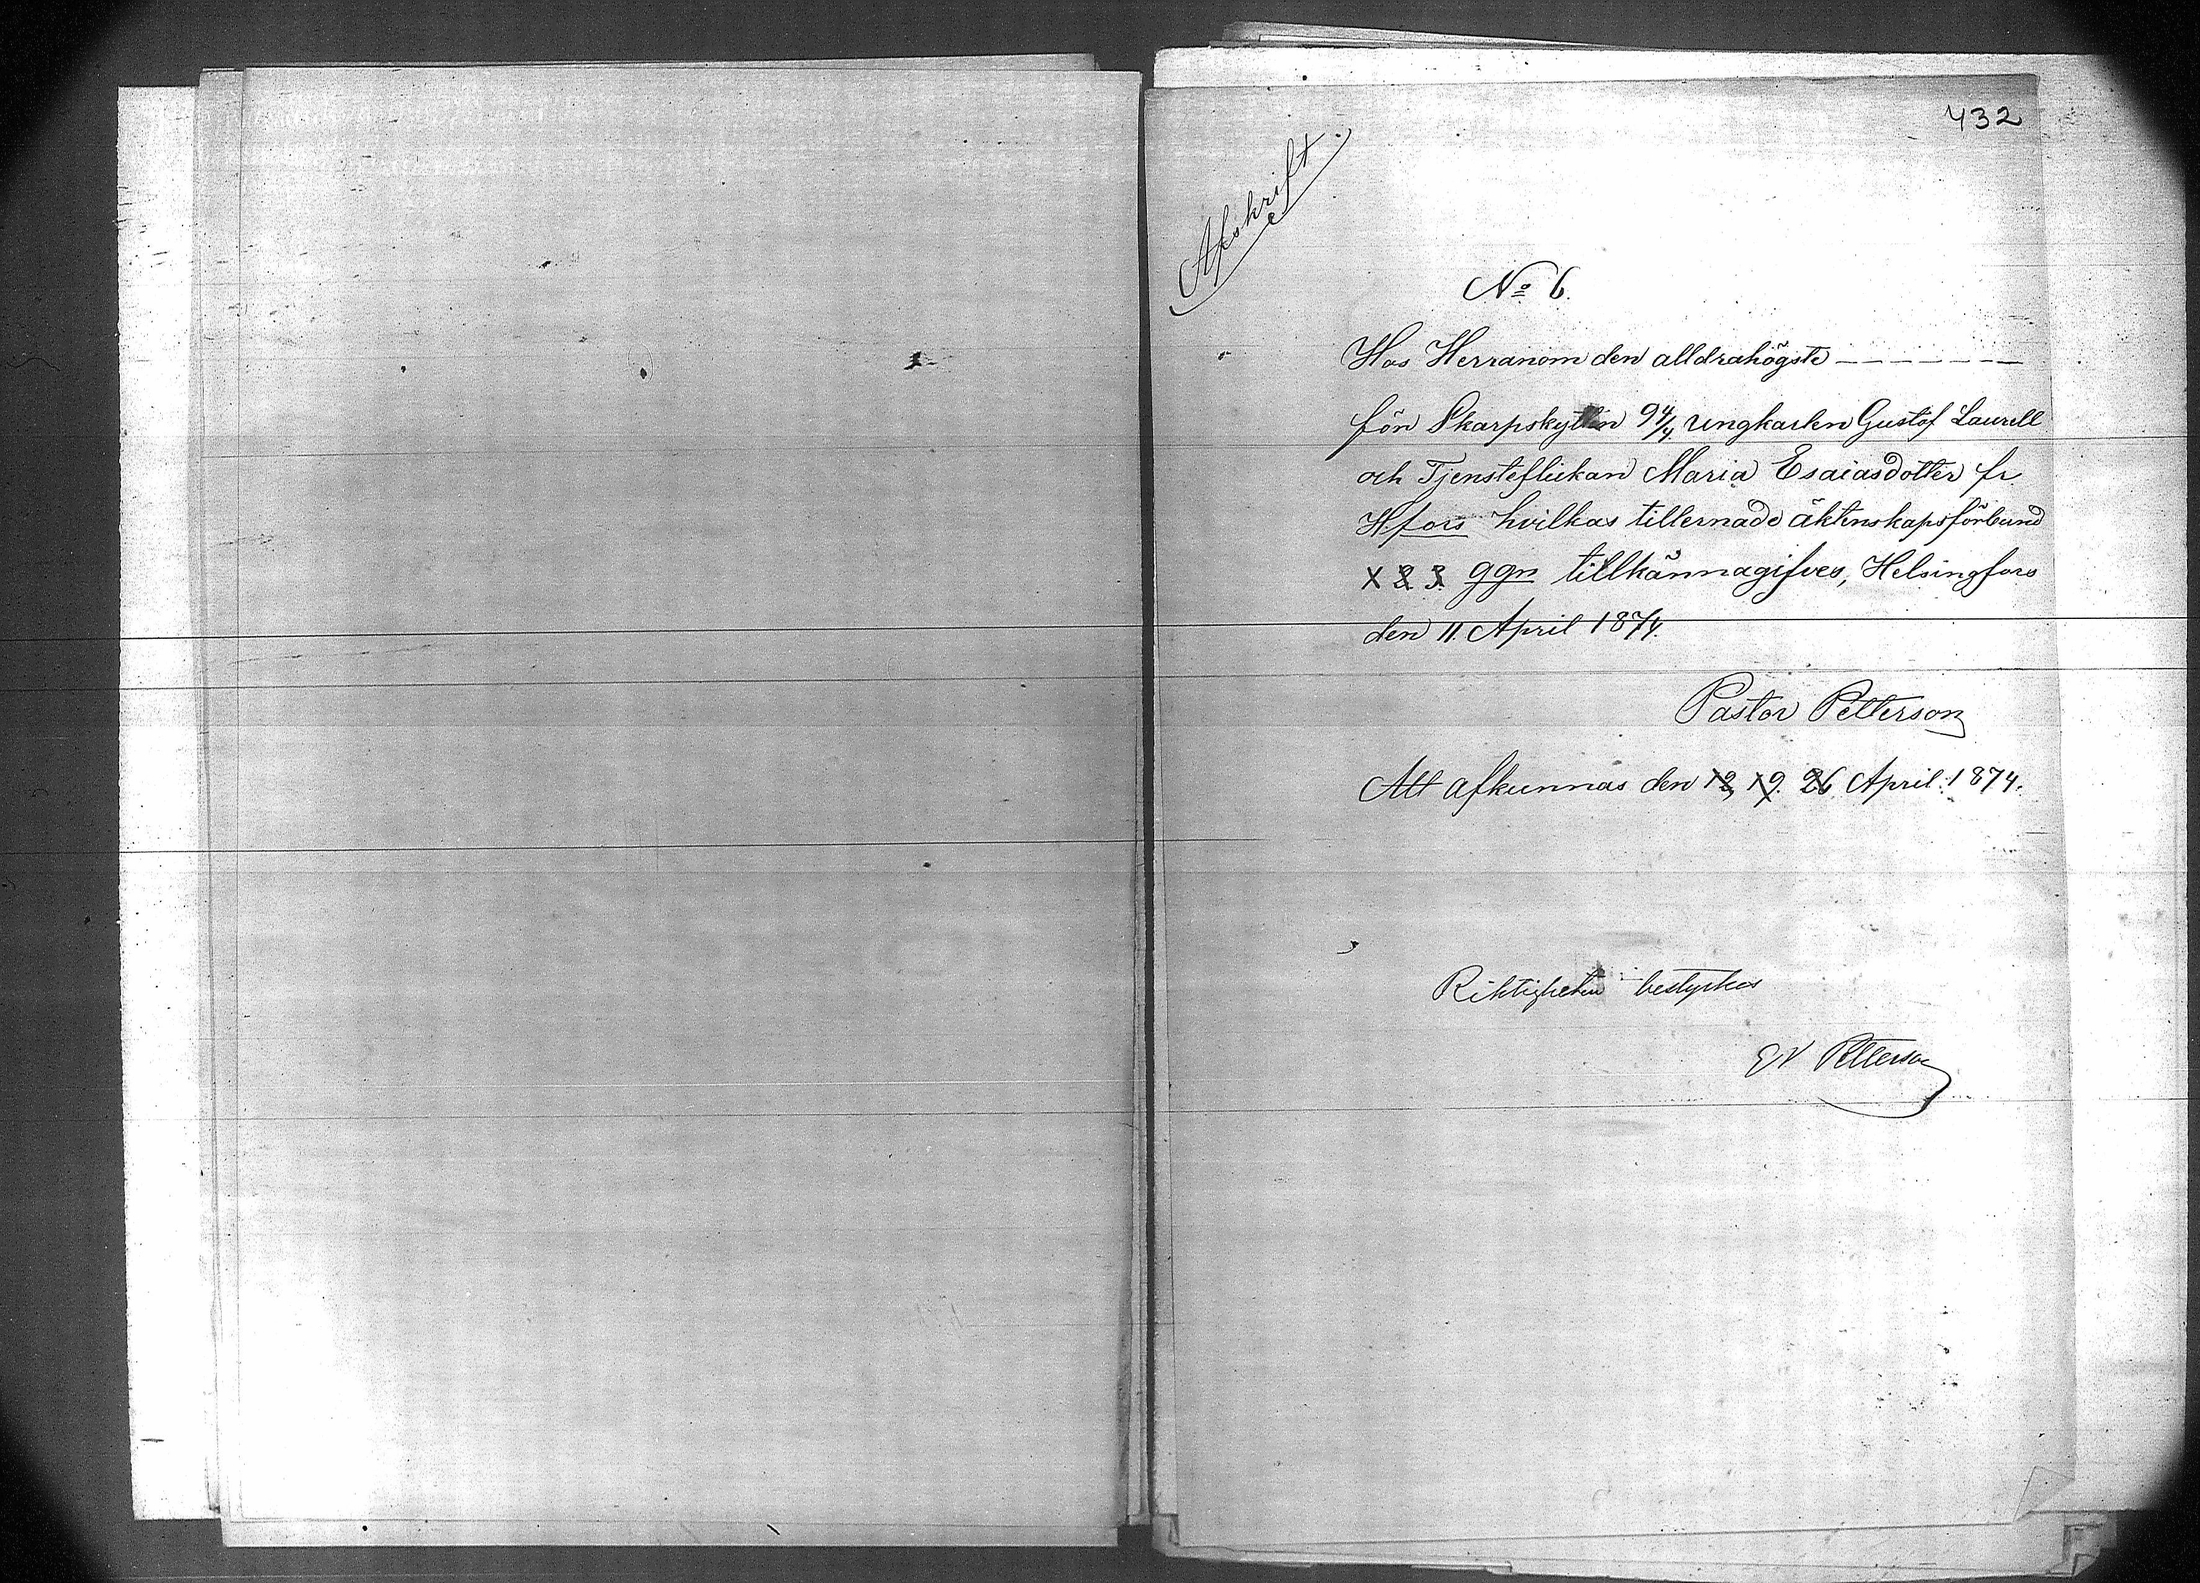 432
Afskrift.
No 6.
Hos Herranom den alldrahögste — — — — — —
för Skarpskytten 94/4 ungkarlen Gustof Laurell
och Tjensteflickan Maria Esaiasdotter fr.
H.fors hvilkas tillernade äktenskapsförbund
1 2 3. ggn tillkännagifves, Helsingfors
den 11. April 1874.
Pastor Petterson
Att afkunnas den 12, 19. 26 April. 1874.
Riktigheten bestyrkes
Petterson